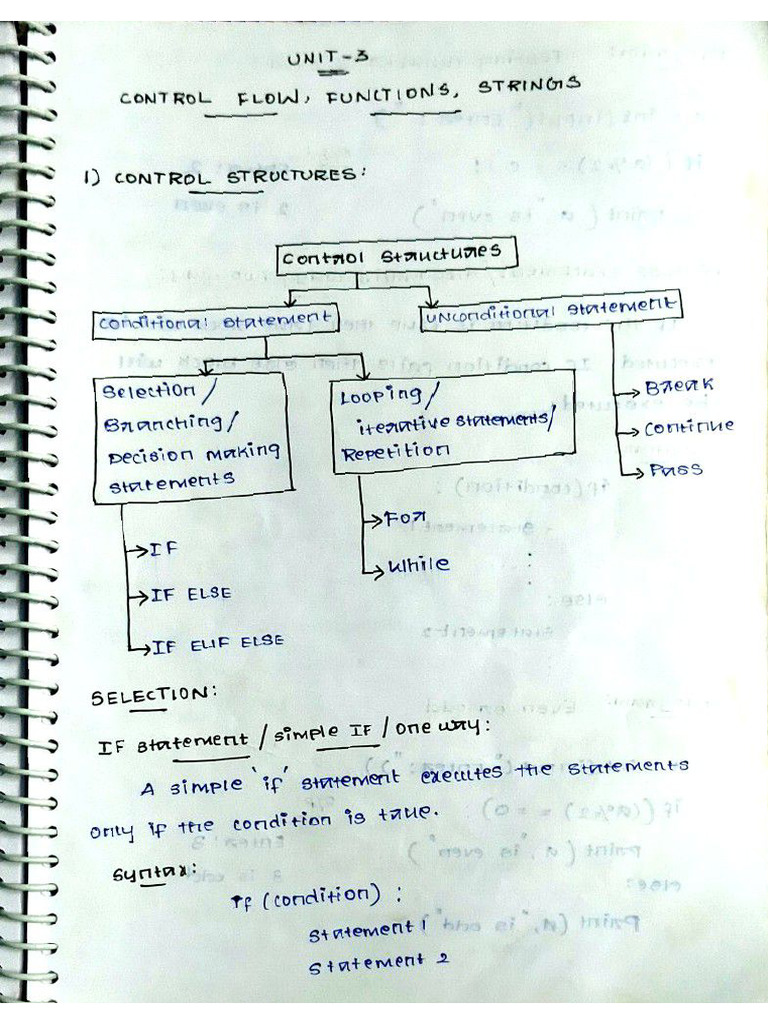 UNIT-3
CONTROL FLOW, FUNCTIONS, STRINGS
1) CONTROL STRUCTURES:
Control Structures
Conditional Statement
Unconditional Statement
Selection/
Branching/
Decision making
Statements
Looping/
iterative statements/
Repetition
Break
Continue
Pass
For
While
IF
IF ELSE
IF ELIF ELSE
SELECTION:
IF Statement / simple IF / one way:
A simple 'if' statement executes the statements
only if the condition is true.
Syntax:
If (condition) :
Statement 1
Statement 2